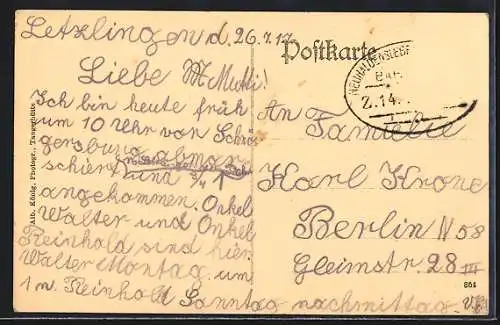 Letzlingen d. 26.7.17
Postkarte
Liebe Mutti!
Ich bin heute früh
um 10 Uhr von
abmar-
schiert und 3/4
angekommen. Onkel
Walter und Onkel
Reinhold sind hier.
Walter Montag um
1 n. Reinhold Sonntag nachmittag.
An Familie
Karl Krone
Berlin N 58
Gleimstr. 28 III
NEUHALDENSLEBEN
Z. 14
Alb. König, Photogr., Tangerhütte
864